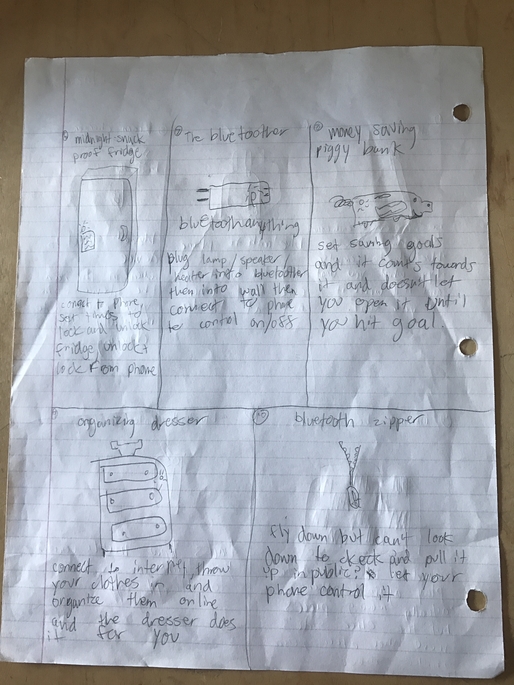 midnight snack
proof fridge
connect to phone,
set times to
lock and unlock
fridge, unlock+
lock from phone
The bluetoother
bluetooth anything
plug lamp/speaker/
heater into bluetoother
then into wall then
connect to phone
to control on/off
money saving
piggy bank
set saving goals
and it counts towards
it and doesn't let
you open it until
you hit goal.
organizing dresser
connect to internet, throw
your clothes in, and
organize them online
and the dresser does
it for you
bluetooth zipper
fly down but can't look
down to check and pull it
up in public? let your
phone control it